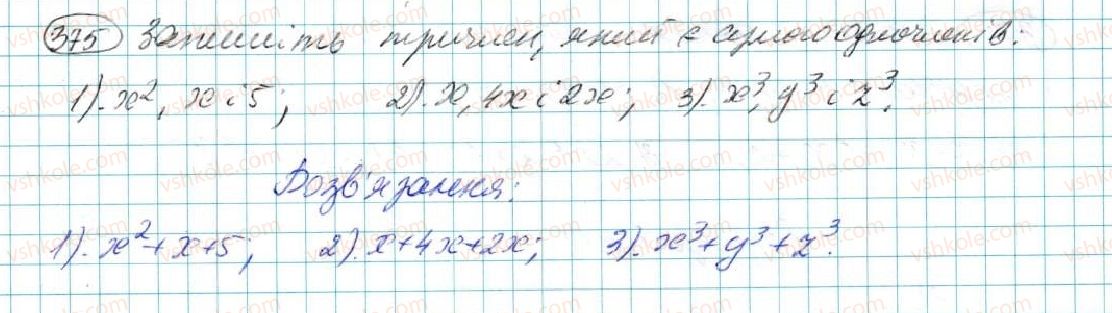 375 Запишіть тричлен, який є сумою одночленів:
1). x², x і 5; 2). x, 4x і 2x; 3). x³, y³ і z³.
Розв'язання:
1). x² + x + 5; 2). x + 4x + 2x; 3). x³ + y³ + z³.